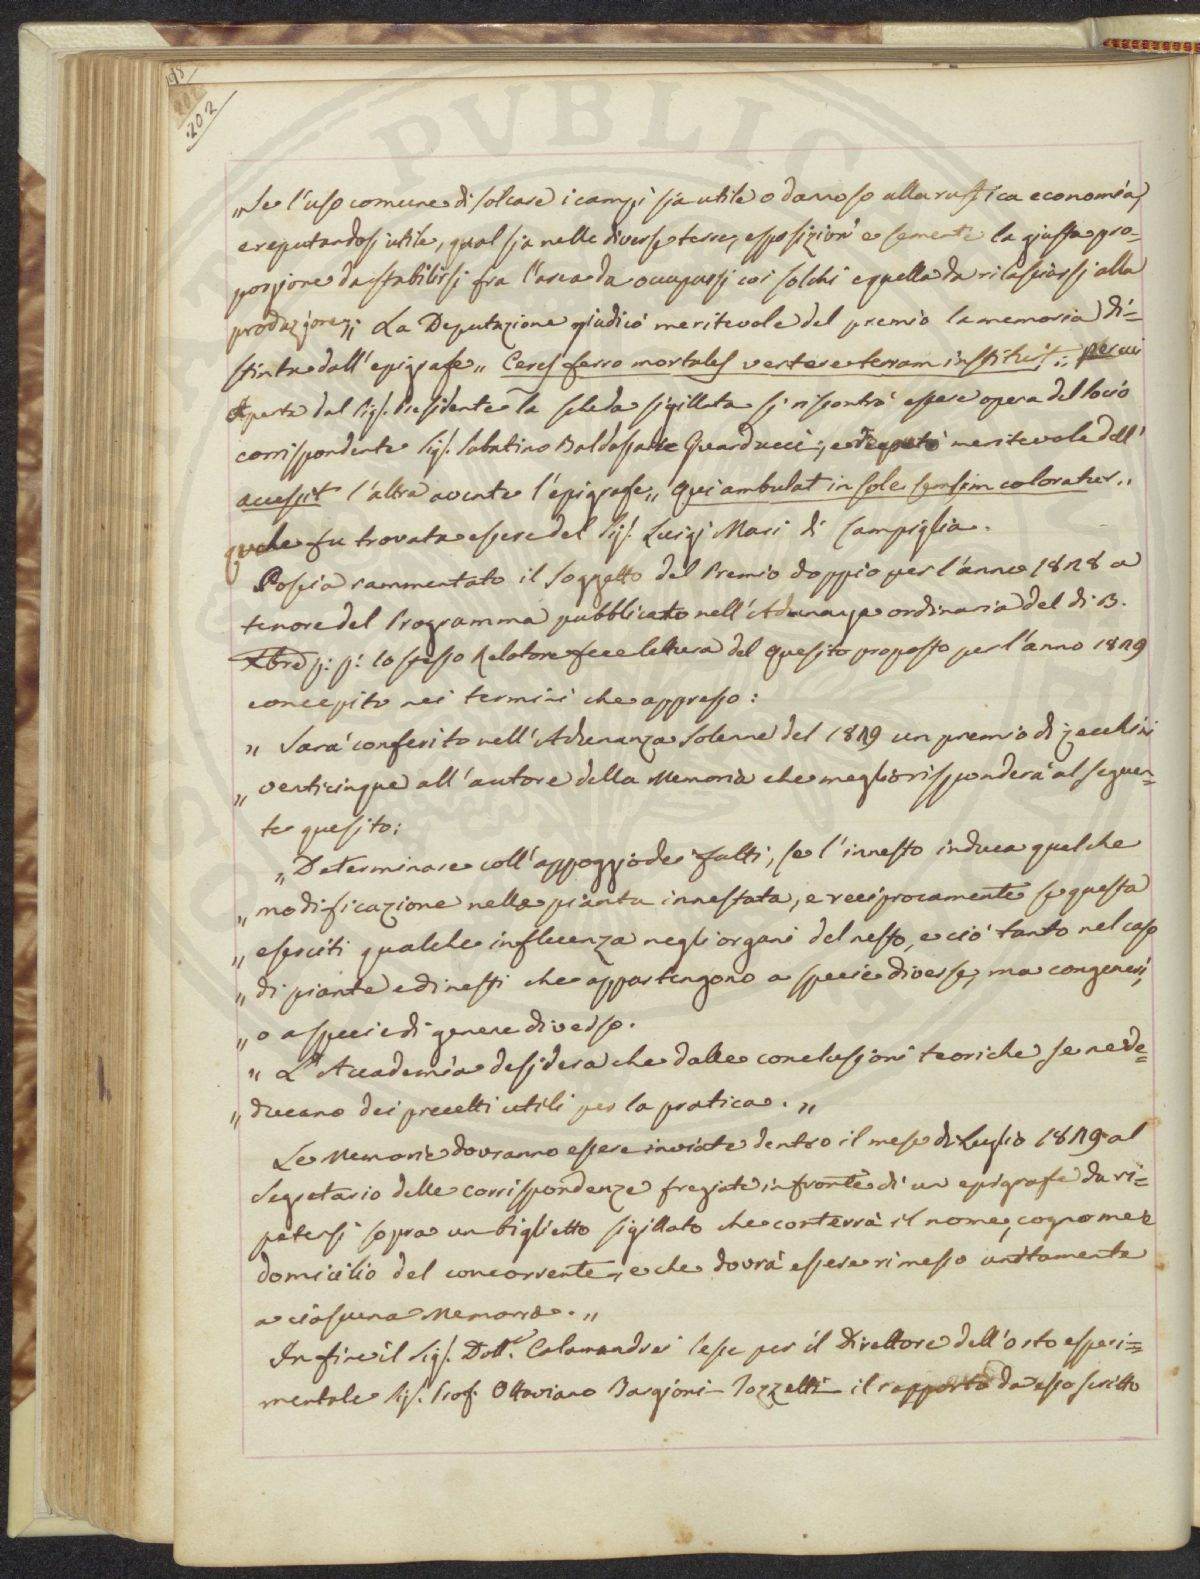 198
202
202
„Se l'uso comune di solcare i campi sia utile o dannoso alla rustica economia,
e reputandosi utile, qual sia nelle diverse terre, esposizioni e sementi la giusta pro-
porzione da stabilirsi fra l'area da occuparsi coi solchi e quella da rilasciarsi alla
produzione„; La Deputazione giudicò meritevole del premio la memoria di=
stinta dall'epigrafe „ Ceres ferro mortales vertere terram instituit „: per cui
Aperta dal Sig.r Presidente la scheda sigillata si riscontrò essere opera del Socio
corrispondente Sig.r Sabatino Baldassarre Guarducci; e reputò meritevole dell'
accessit l'altra avente l'epigrafe „ Qui ambulat in sole sensim coloratur „
che fu trovata essere del Sig.r Luigi Masi di Campiglia.
Poscia rammentato il Soggetto del Premio doppio per l'anno 1818 a
tenore del Programma pubblicato nell'Adunanza ordinaria del dì 13.
Xbre p: p: lo stesso Relatore fece lettura del Quesito proposto per l'anno 1819
concepito nei termini che appresso:
„ Sarà conferito nell'Adunanza Solenne del 1819 un premio di zecchini
„ venticinque all'autore della Memoria che meglio risponderà al seguen=
te quesito:
„ Determinare coll'appoggio de' fatti, se l'innesto induca qualche
„ modificazione nella pianta innestata, e reciprocamente se questa
„ eserciti qualche influenza negli organi del nesto, e ciò tanto nel caso
„ di piante e di nesti che appartengono a specie diverse, ma congeneri,
„ o a specie di genere diverso.
„ L'Accademia desidera che dalle conclusioni teoriche se ne de=
„ ducano dei precetti utili per la pratica. „
Le Memorie dovranno essere inviate dentro il mese di Luglio 1819 al
Segretario delle corrispondenze fregiate in fronte di un epigrafe da ri=
petersi sopra un biglietto sigillato che conterrà il nome, cognome e
domicilio del concorrente, e che dovrà essere rimesso unitamente
a ciascuna Memoria. „
In fine il Sig.r Dott.r Calamandrei lesse per il Direttore dell'orto esperi=
mentale Sig.r Prof. Ottaviano Targioni-Tozzetti il rapporto da esso scritto